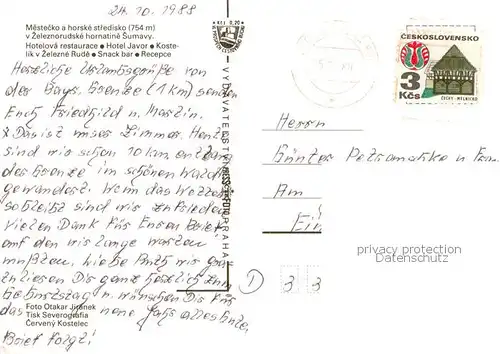 24. 10. 1988
Městečko a horské středisko (754 m)
v Železnorudské hornatině Šumavy.
Hotelová restaurace ● Hotel Javor ● Koste-
lík v Železné Rudě ● Snack bar ● Recepce
Herzliche Urlaubsgrüße von
der Bayr. Grenze (1 km) senden
Euch Friedhild u. Martin.
* Das ist unser Zimmer. Heute
sind wir schon 10 km entlang
der Grenze im schönen Wald
gewandert. Wenn das Wetter
so bleibt sind wir zufrieden
Vielen Dank für Euren Brief
auf den wir lange warten
mußten, liebe
Dir ganz herzlich zum
Geburtstag u. wünschen Dir für
das neue Jahr alles Gute.
Brief folgt!
Foto Otakar Jiránek
Tisk Severografia
Červený Kostelec
VYDAVATELSTVÍ PRESSFOTO PRAHA
ČESKOSLOVENSKO
3
Kčs
ČECHY - MĚLNICKO
Herrn
Günter u Fam.
Am
D 3 3
privacy protection
Datenschutz